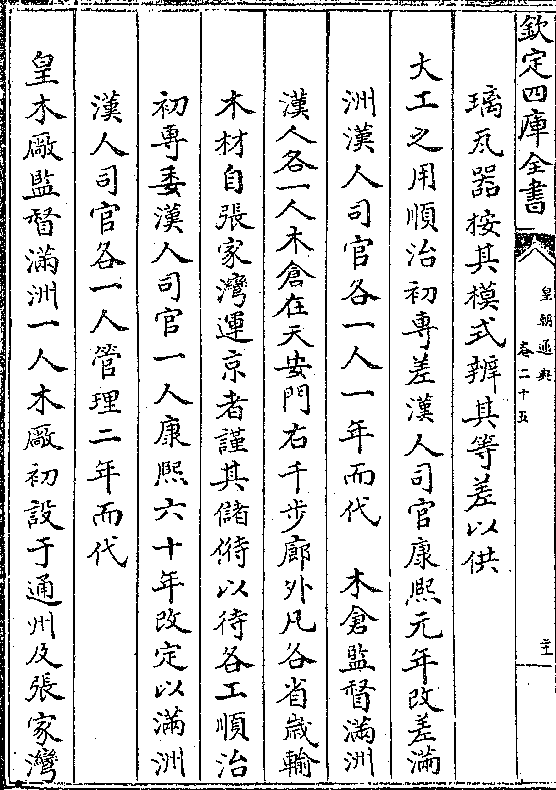 欽定四庫全書
皇朝通典
卷二十五
璃瓦器按其模式辨其等差以供
大工之用順治初專差漢人司官康熙元年改差滿
洲漢人司官各一人一年而代　木倉監督滿洲
漢人各一人木倉在天安門右千步廊外凡各省歲輸
木材自張家灣運京者謹其儲偫以待各工順治
初專委漢人司官一人康熙六十年改定以滿洲
漢人司官各一人管理二年而代
皇木廠監督滿洲一人木廠初設于通州及張家灣